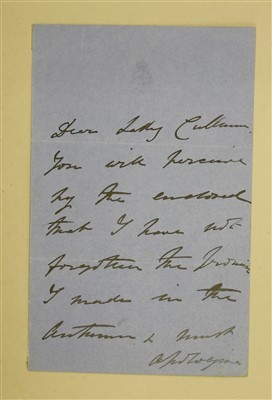 Dear Lady Cullum
You will perceive
by the enclosed
that I have not
forgotten the promise
I made in the
Autumn & must
apologise